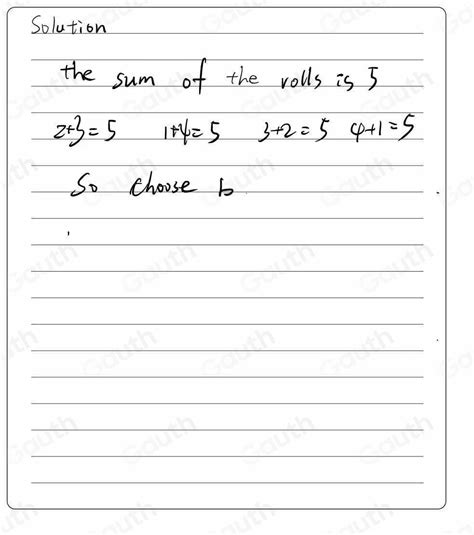 Solution
the sum of the rolls is 5
2+3=5 1+4=5 3+2=5 4+1=5
So choose b